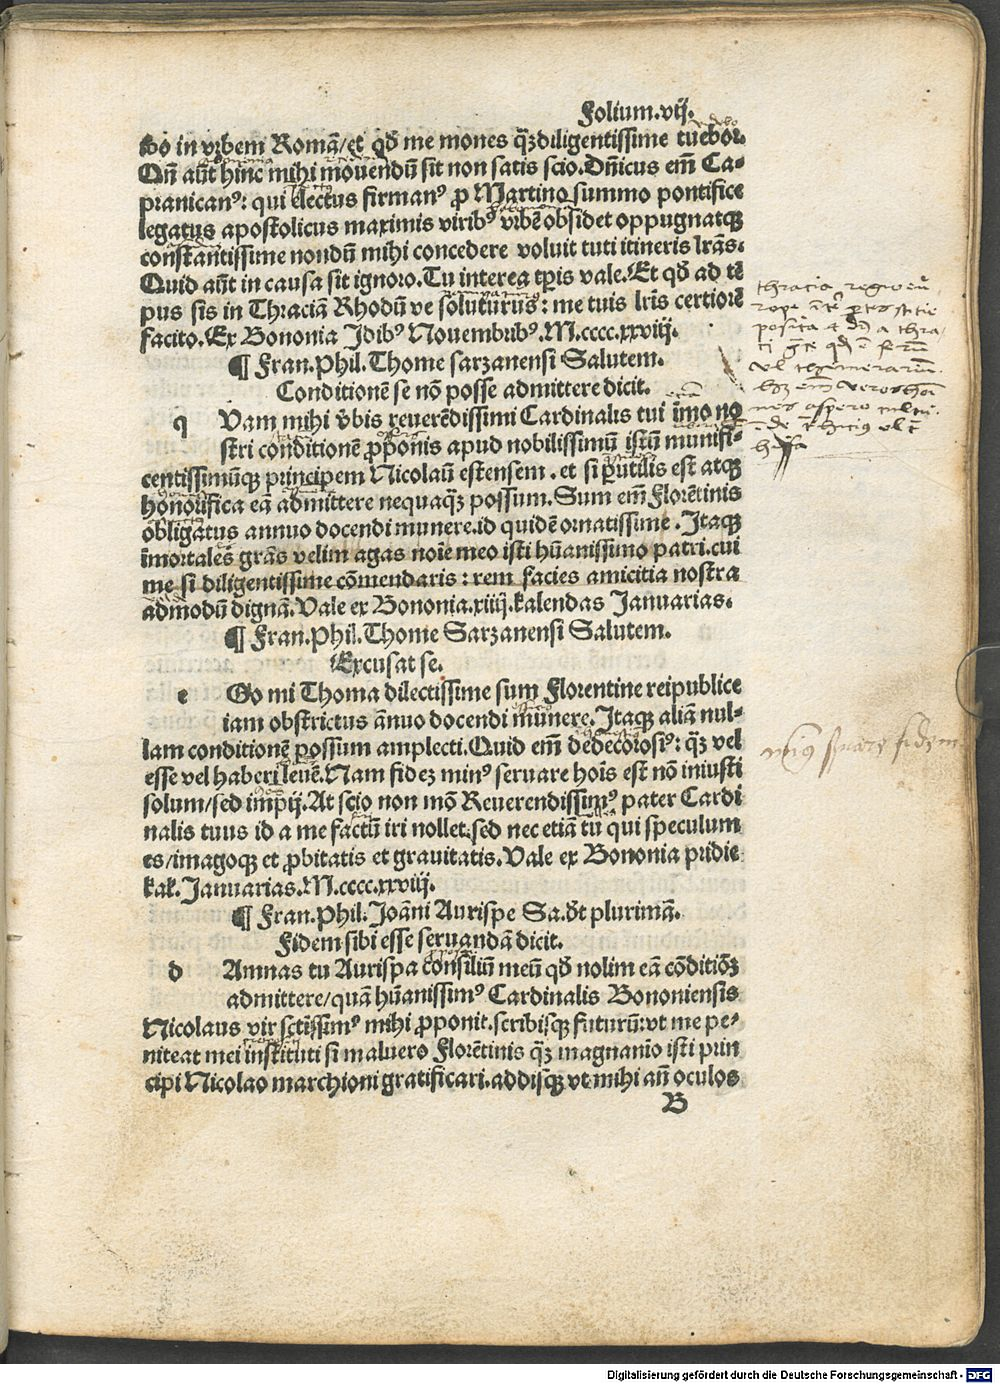 Folium.vij.
bo in vrbem Romā/et qđ me mones q̄ȝdiligentissime tuebor.
Qñ aūt hinc mihi mouendū sit non satis scio.Dñicus em̄ Ca-
pranicanꝰ: qui electus firmanꝰ ꝓ Martino summo pontifice
legatus apostolicus maximis viribꝰ vrbē obsidet oppugnatqꝫ
constantissime nondū mihi concedere voluit tuti itineris lr̄as.
Quid aūt in causa sit ignoro.Tu interea tꝑis vale.Et qđ ad tē
pus sis in Thraciā Rhodū ve soluturus: me tuis lr̄is certiorē
facito.Ex Bononia Idibꝰ Nouembribꝰ.M.cccc.xxviij.
¶ Fran.Phil.Thome sarzanensi Salutem.
Conditionē se nō posse admittere dicit.
q Vam mihi v̄bis reuerēdissimi Cardinalis tui īmo no
stri conditionē ꝓponis apud nobilissimū istū munifi-
centissimūqꝫ principem Nicolaū estensem.et si ꝑutilis est atqꝫ
honorifica eā admittere nequaq̄ȝ possum.Sum em̄ Florētinis
obligatus annuo docendi munere.id quidē ornatissime.Itaqꝫ
īmortales gr̄as velim agas noīe meo isti hūanissimo patri.cui
me si diligentissime cōmendaris: rem facies amicitia nostra
admodū dignā.Vale ex Bononia.xiiij.kalendas Januarias.
¶ Fran.Phil.Thome Sarzanensi Salutem.
Excusat se.
e Go mi Thoma dilectissime sum Florentine reipublice
iam obstrictus ānuo docendi munere.Itaqꝫ aliā nul-
lam conditionē possum amplecti.Quid em̄ dedecorosiꝰ: q̄ȝ vel
esse vel haberi leuē.Nam fideȝ minꝰ seruare hoīs est nō iniusti
solum/sed impij.At scio non mō Reuerendissimꝰ pater Cardi
nalis tuus id a me factū iri nollet.sed nec etiā tu qui speculum
es/imagoqꝫ et ꝓbitatis et grauitatis.Vale ex Bononia pridie
kal.Januarias.M.cccc.xxviij.
¶ Fran.Phil.Joāni Aurispe Sa.dt plurimā.
Fidem sibi esse seruandā dicit.
d Amnas tu Aurispa consiliū meū qđ nolim eā cōditiōȝ
admittere/quā hūanissimꝰ Cardinalis Bononiensis
Nicolaus vir sctissimꝰ mihi ꝓponit.scribisqꝫ futurū:vt me pe-
niteat mei instituti si maluero Florētinis q̄ȝ magnanīo isti prin
cipi Nicolao marchioni gratificari.addisqꝫ vt mihi añ oculos
B
thracia regio eu
posita
seruare fidem
Digitalisierung gefördert durch die Deutsche Forschungsgemeinschaft - DFG